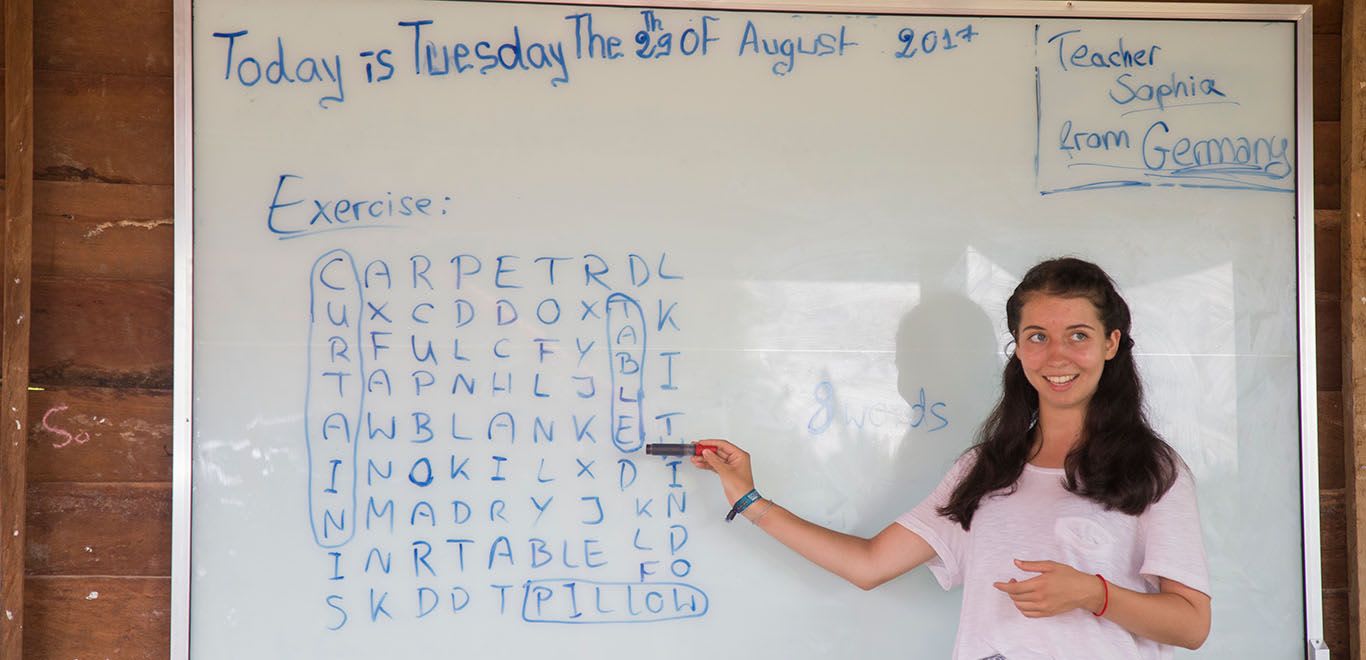 Today is Tuesday The 29Th OF August 2017
Teacher
Sophia
from Germany
Exercise:
C A R P E T R D L
U X C D D O X T K
A
R F U L C F Y B I
T A P N H L J L
A W B L A N K E T
I N O K I L X D I
N M A D R Y J K N
I N R T A B L E L D
F O
S K D D T P I L L O W
8 words
So